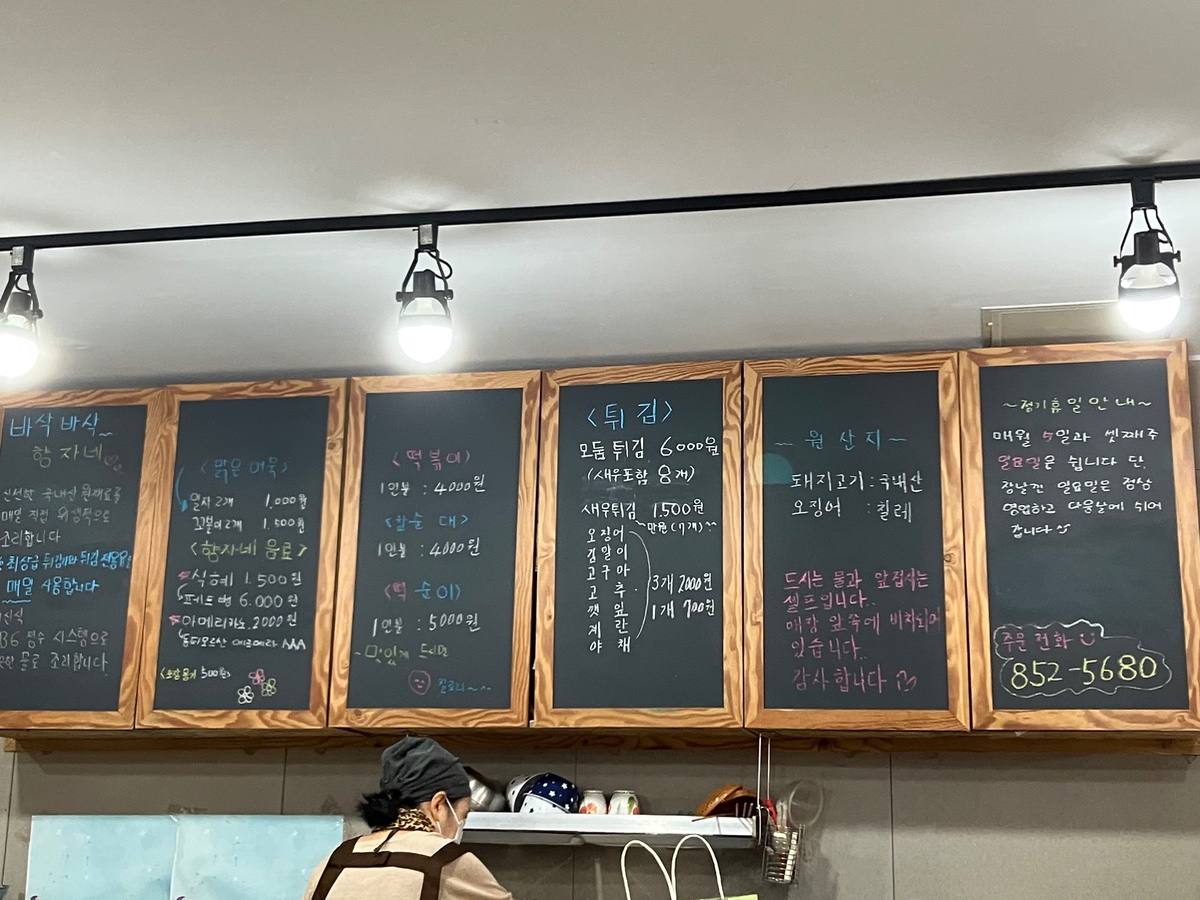 바삭바삭~
향자네
신선한 국내산 원재료를
매일 직접 위생적으로
조리합니다
최상급 튀김가루 튀김 전용유를
매일 사용합니다
정수 시스템으로
물로 조리합니다.
<맑은 어묵>
일자 2개 1,000원
꼬불이 2개 1,500원
<향자네 음료>
식혜 1.500원
페트병 6.000원
아메리카노.2000원
동티모르산 에르메라 AAA
<포장용기 500원>
<떡볶이>
1인분 : 4000원
<찰순대>
1인분 : 4000원
<떡순이>
1인분 : 5000원
~맛있게 드시면
칼로리~~
<튀김>
모둠튀김 6000원
(새우포함 8개)
새우튀김 1,500원
~만원(7개)~
오징어
김말이
고구마
고추
깻잎
계란
야채
3개 2000원
1개 700원
~원산지~
돼지고기:국내산
오징어 :칠레
드시는 물과 앞접시는
셀프입니다..
매장 앞쪽에 비치되어
있습니다..
감사합니다
~정기휴일안내~
매월 5일과 셋째주
일요일은 쉽니다 단,
장날낀 일요일은 정상
영업하고 다음날에 쉬어
갑니다
주문전화
852-5680